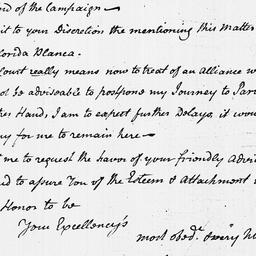 nd of the Campaign —
it to your Discretion the mentioning this Matter
lorida Blanca.
Court really means now to treat of an Alliance w
ot be adviseable to postpone my Journey to Par
her Hand, I am to expect further Delays it wou
ny for me to remain here —
t me to request the favor of your friendly Advi
nd to assure You of the Esteem & Attachment
Honor to be
Your Excellency's
most obedt. & very hu